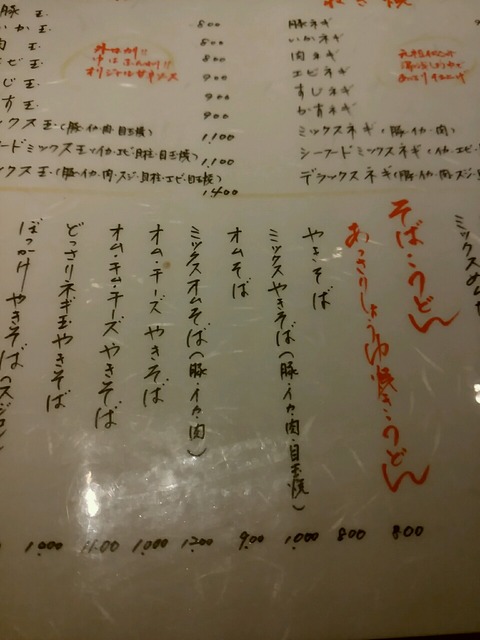 豚玉 800
いか玉 800
肉玉 800
900
すじ玉 900
900
ックス玉(豚・イカ・肉・目玉焼) 1,100
ードミックス玉(イカ・エビ・貝柱・目玉焼) 1,100
ックス玉(豚・イカ・肉・スジ・貝柱・エビ・目玉焼) 1,400
外はカリ!!
中はふんわり!!
ねぎ焼
豚ネギ
いかネギ
肉ネギ
エビネギ
すじネギ
かきネギ
ミックスネギ(豚・イカ・肉)
シーフードミックスネギ(イカ・エビ・
デラックスネギ(豚・イカ・肉・スジ
ミックスめんた
そば・うどん
あっさりしょうゆ焼きうどん 800
やきそば 800
ミックスやきそば(豚・イカ・肉・目玉焼) 1,000
オムそば 900
ミックスオムそば(豚・イカ・肉) 1,200
オム・チーズやきそば 1,000
オム・キム・チーズやきそば 1,100
どっさりネギ玉やきそば 1,000
ぼっかけやきそば(スジコン